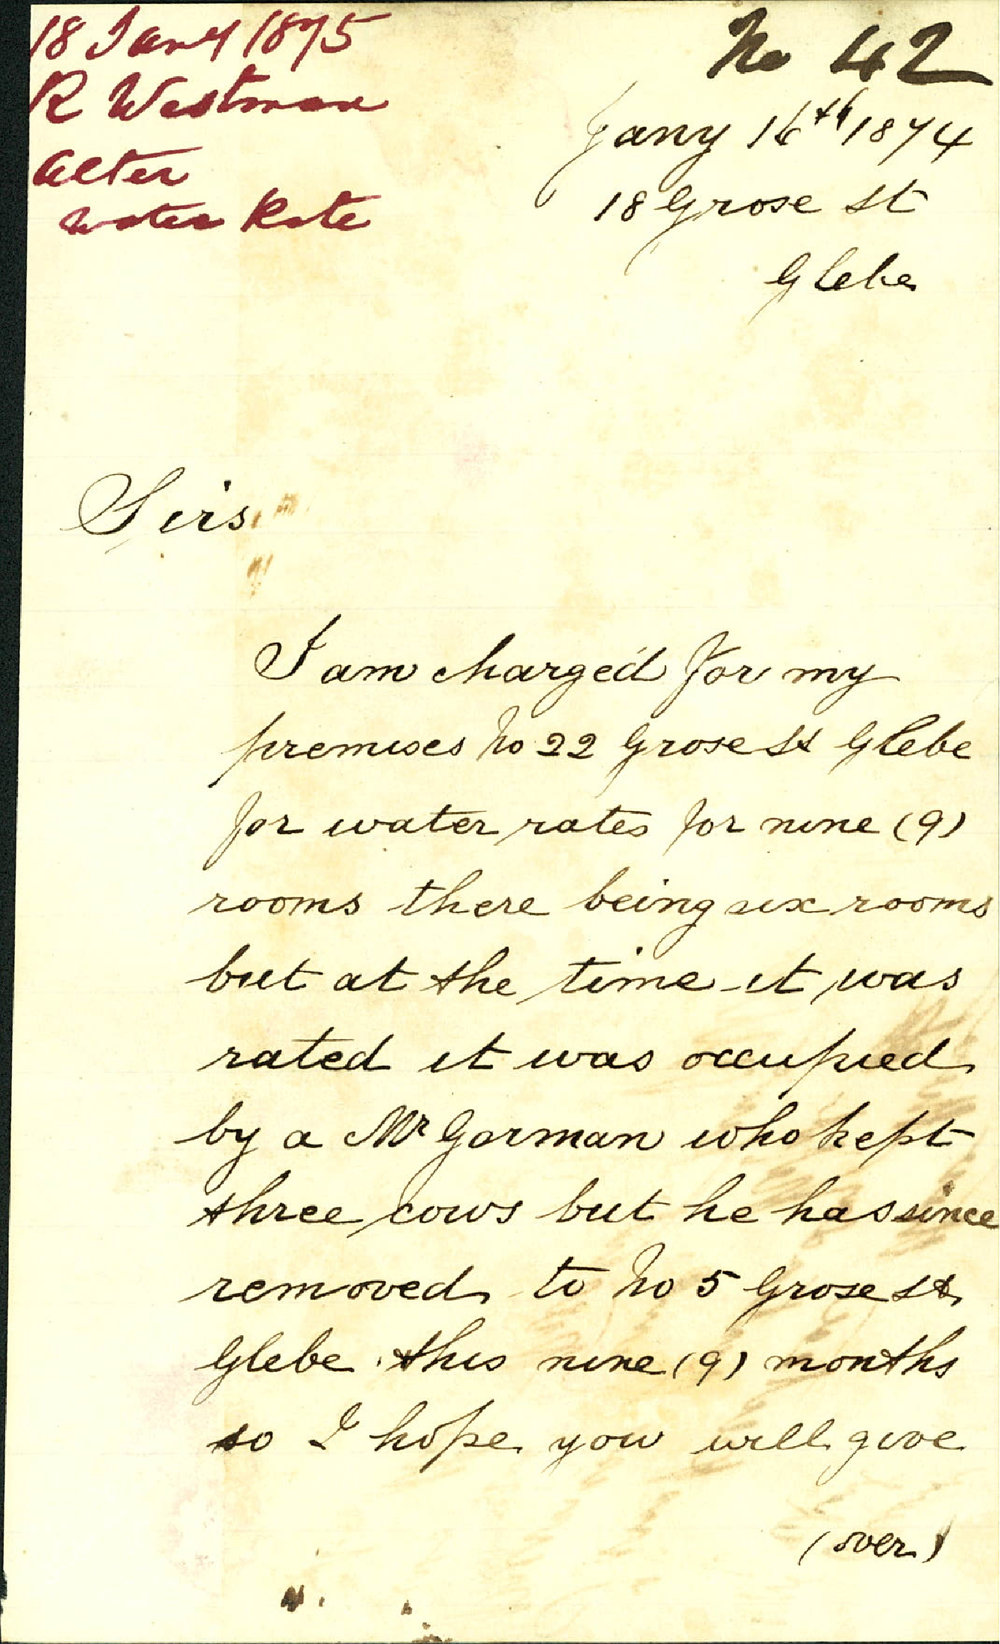 18 Jany 1875
R Westman
alter
water Rate
No 42
Jany 16th 1874
18 Grose St
Glebe
Sirs
I am charged for my
premises No 22 Grose St Glebe
for water rates for nine (9)
rooms there being six rooms
but at the time it was
rated it was occupied
by a Mr Gorman who kept
three cows but he has since
removed to No 5 Grose St
Glebe this nine (9) months
so I hope you will give
(over)